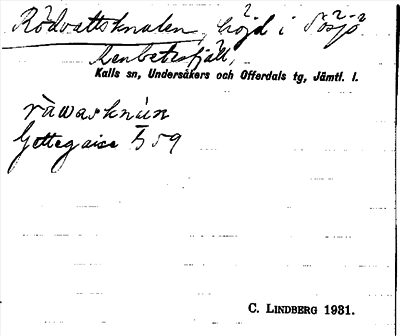 Rödvattsknulen, höjd i Sösjö
Renbetesfjäll,
Kalls sn, Undersåkers och Offerdals tg, Jämtl. l.
ràwasknùn
Gettegaise 559
C. LINDBERG 1931.